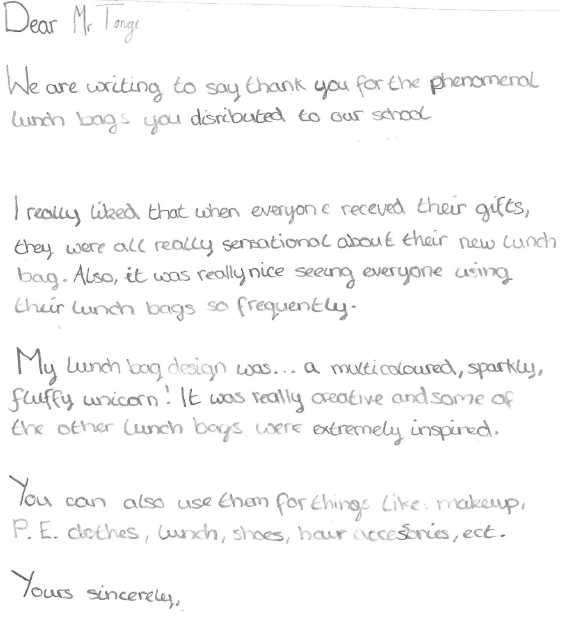 Dear Mr Tonge
We are writing to say thank you for the phenomenal
lunch bags you disributed to our school
I really liked that when everyone receved their gifts,
they were all really sensational about their new lunch
bag. Also, it was really nice seeing everyone using
their lunch bags so frequently.
My lunch bag design was... a multicoloured, sparkly,
fluffy unicorn! It was really creative and some of
the other lunch bags were extremely inspired.
You can also use them for things like: makeup,
P.E. clothes, lunch, shoes, hair accesories, ect.
Yours sincerely,